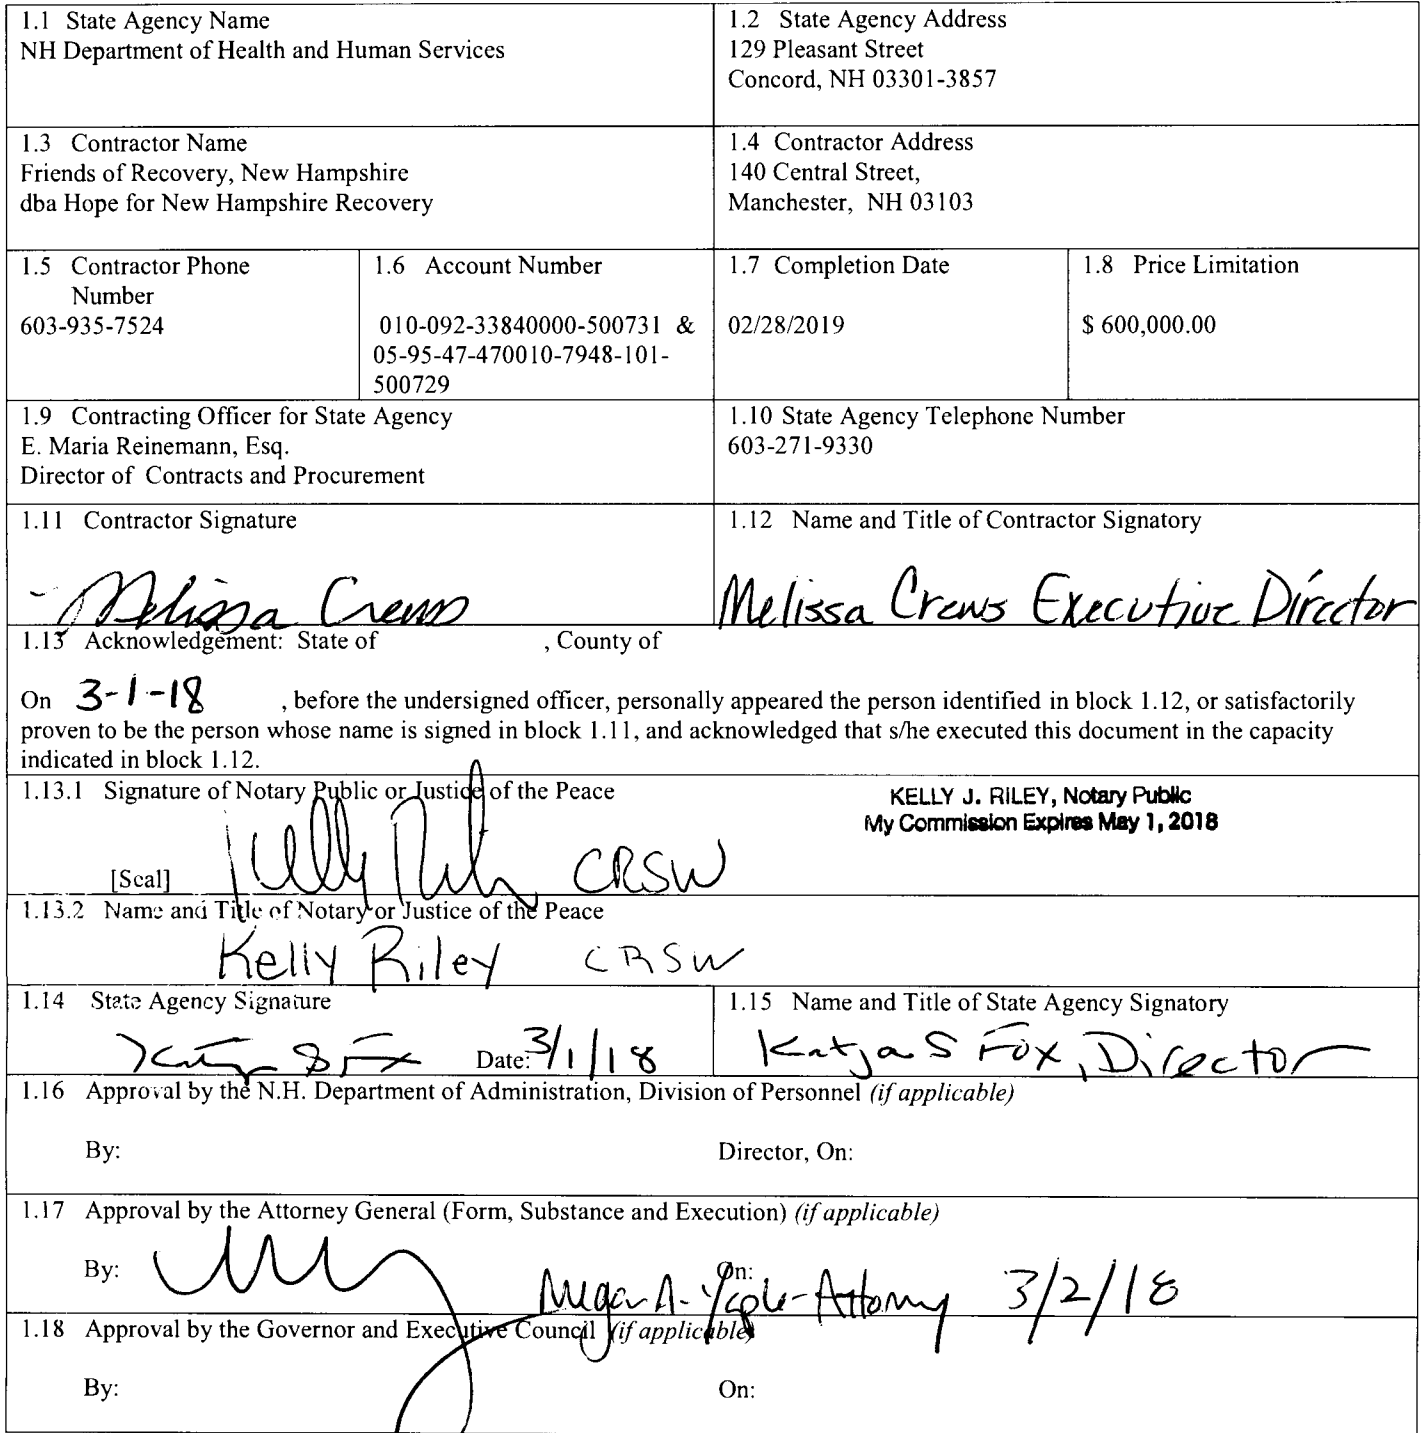 1.1 State Agency Name
NH Department of Health and Human Services
1.2 State Agency Address
129 Pleasant Street
Concord, NH 03301-3857
1.3 Contractor Name
Friends of Recovery, New Hampshire
dba Hope for New Hampshire Recovery
1.4 Contractor Address
140 Central Street,
Manchester, NH 03103
1.5 Contractor Phone
Number
603-935-7524
1.6 Account Number
010-092-33840000-500731 &
05-95-47-470010-7948-101-
500729
1.7 Completion Date
02/28/2019
1.8 Price Limitation
$ 600,000.00
1.9 Contracting Officer for State Agency
E. Maria Reinemann, Esq.
Director of Contracts and Procurement
1.10 State Agency Telephone Number
603-271-9330
1.11 Contractor Signature
Melissa Crews
1.12 Name and Title of Contractor Signatory
Melissa Crews Executive Director
1.13 Acknowledgement: State of , County of
On 3-1-18 , before the undersigned officer, personally appeared the person identified in block 1.12, or satisfactorily
proven to be the person whose name is signed in block 1.11, and acknowledged that s/he executed this document in the capacity
indicated in block 1.12.
1.13.1 Signature of Notary Public or Justice of the Peace
KELLY J. RILEY, Notary Public
My Commission Expires May 1, 2018
[Seal] Kelly Riley CRSW
1.13.2 Name and Title of Notary or Justice of the Peace
Kelly Riley CRSW
1.14 State Agency Signature
Date: 3/1/18
1.15 Name and Title of State Agency Signatory
Katja S Fox, Director
1.16 Approval by the N.H. Department of Administration, Division of Personnel (if applicable)
By: Director, On:
1.17 Approval by the Attorney General (Form, Substance and Execution) (if applicable)
By: On:
Megan A. Yaple - Attorney 3/2/18
1.18 Approval by the Governor and Executive Council (if applicable)
By: On: